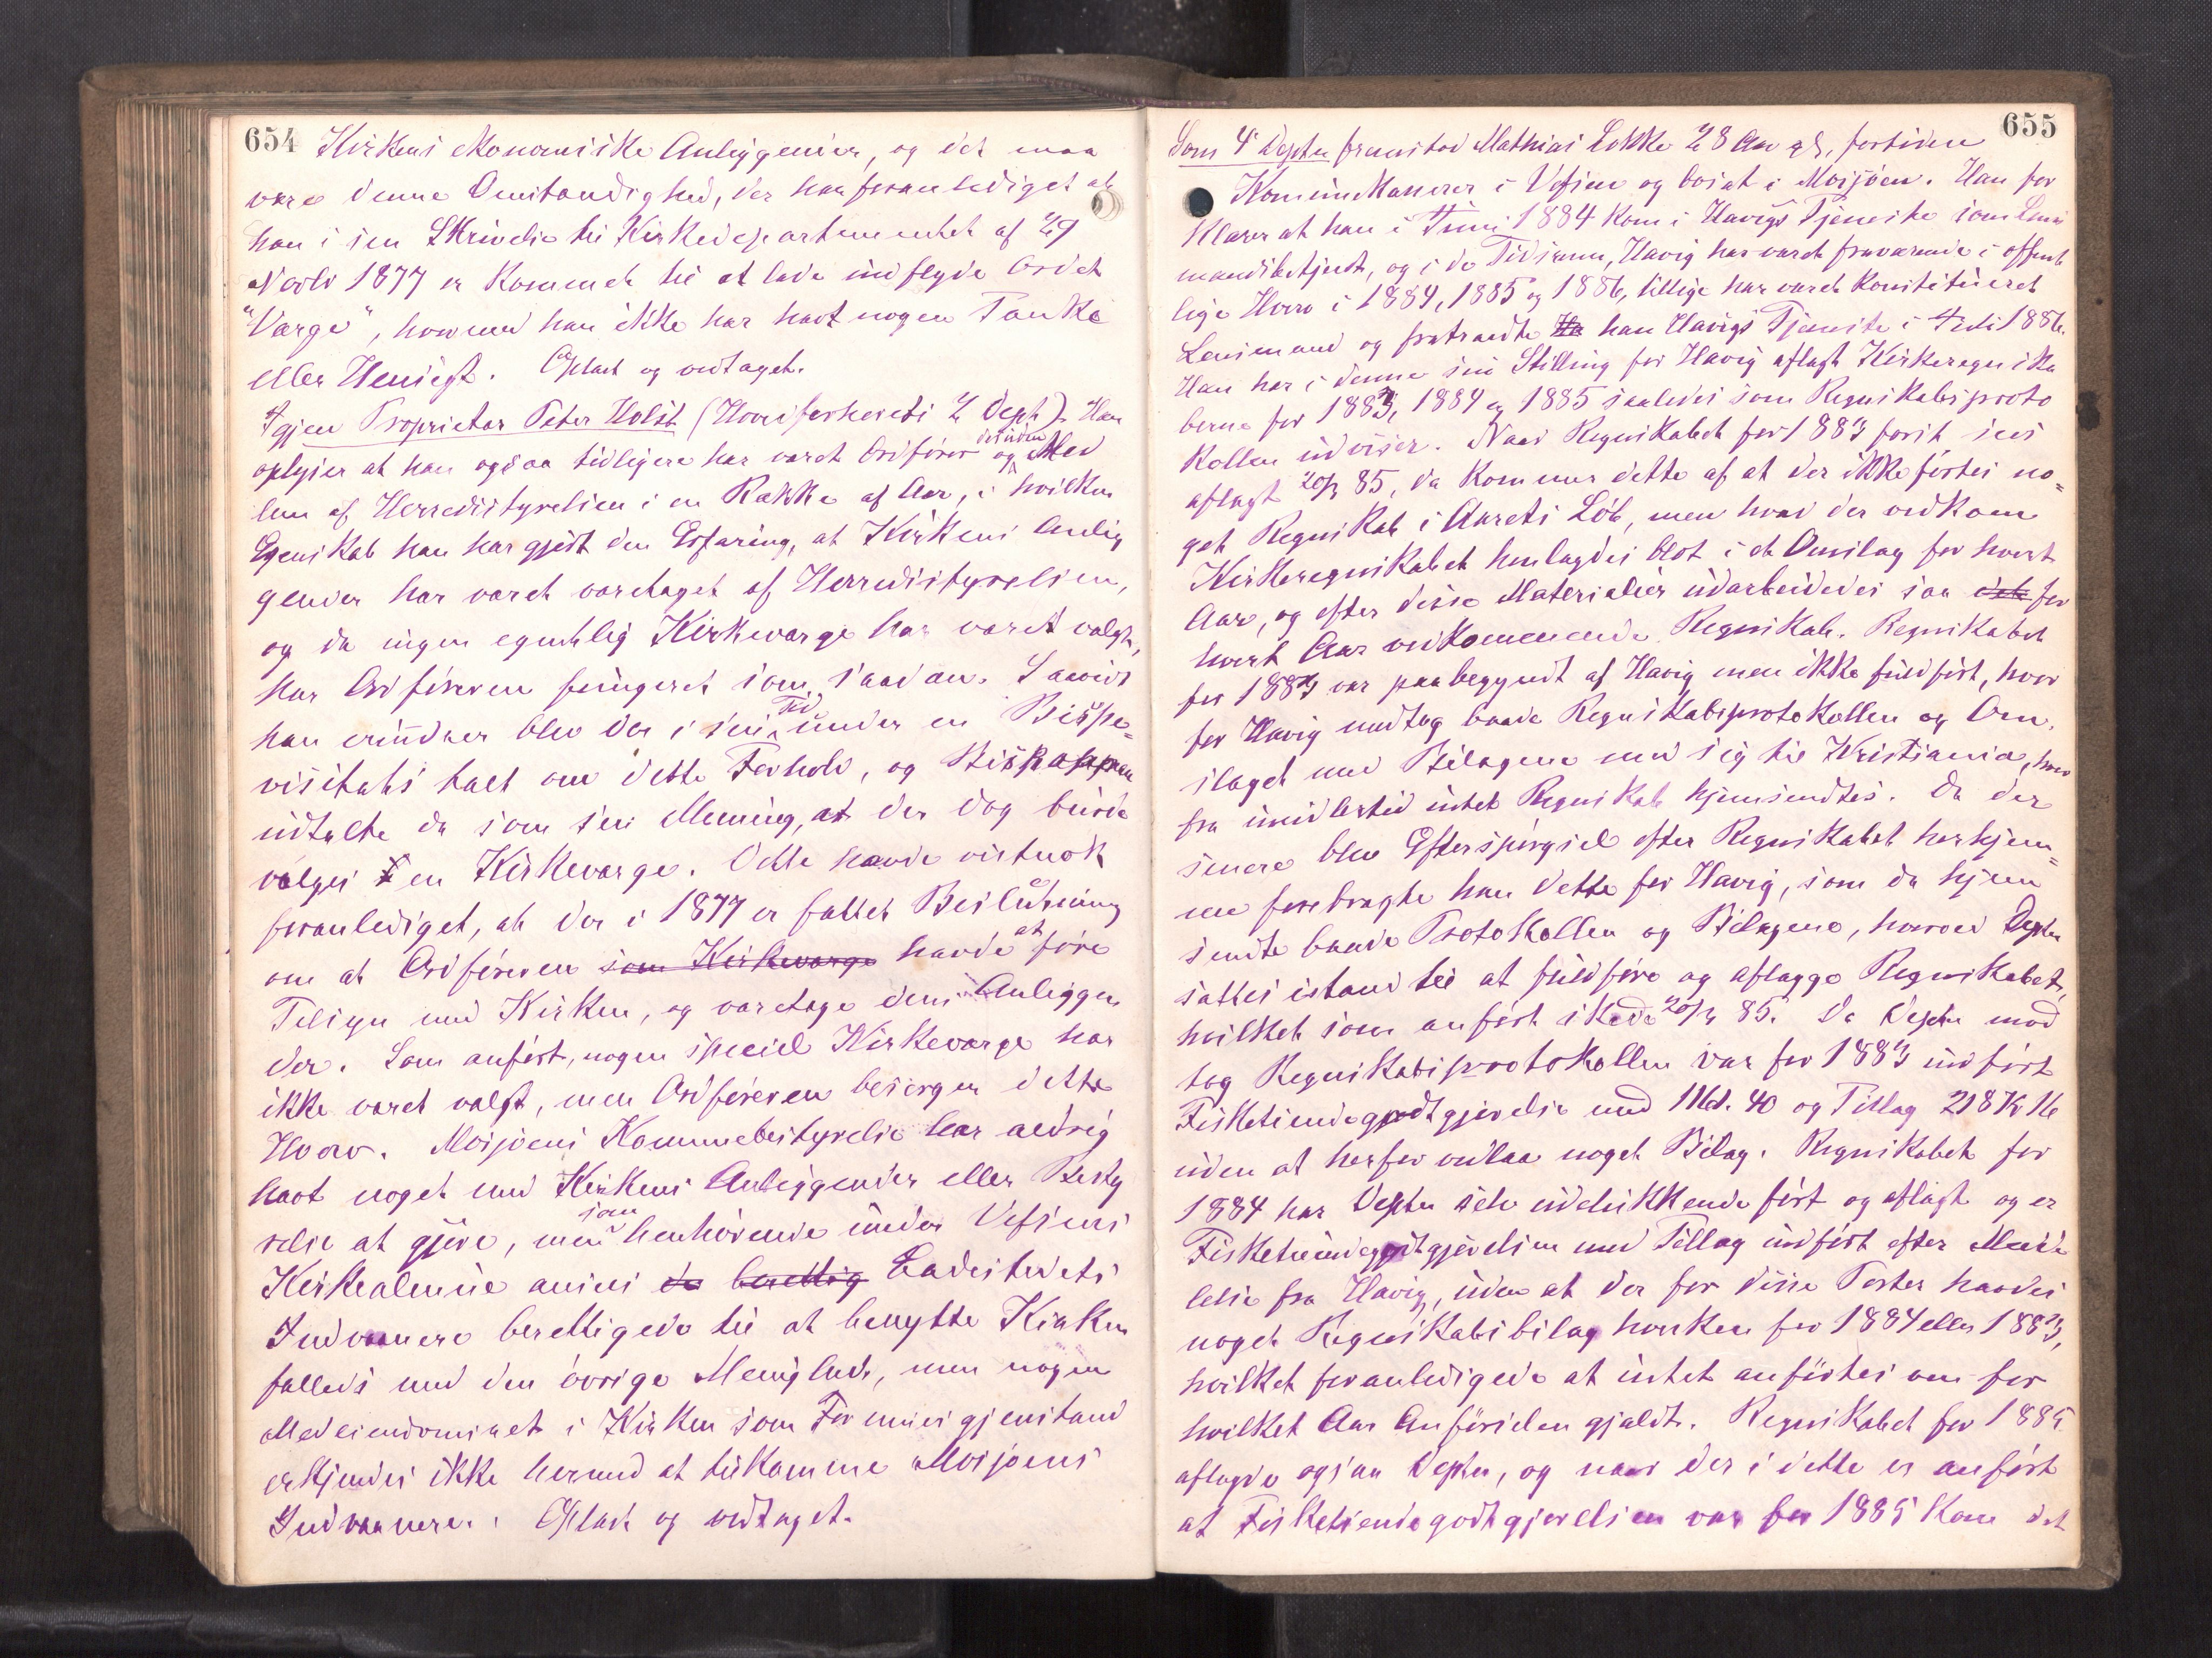 654
Kirkens økonomiske Anliggender, og det maa
være denne Omstændighed, der har foranlediget at
han i sin Skrivelse til Kirkedepartementet af 29
Novbr 1877 er kommet til at lade indflyde Ordet
"Værge", hvormed han ikke har havt nogen Tanke
eller Hensigt. Oplæst og vedtaget.
Igjen Proprietær Peter Holst (Hovedforhørets 2 Dept). Han
oplyser at han ogsaa tidligere har været Ordfører og desuden Med
lem af Herredsstyrelsen i en Række af Aar, i hvilken
Egenskab han har gjort den Erfaring, at Kirkens Anlig
gender har været varetaget af Herredsstyrelsen,
og da ingen egentlig Kirkeværge har været valgt,
har Ordføreren fungeret som saadan. Saavidt
han erindrer blev der i sin Tid under en Bispe-
visitats talt om dette Forhold, og Biskoppen
udtalte da som sin Mening, at der dog burde
vælges en Kirkeværge. Dette havde vistnok
foranlediget, at der i 1877 er fattet Beslutning
om at Ordføreren som Kirkeværge havde at føre
Tilsyn med Kirken, og varetage dens Anliggen
der. Som anført, nogen speciel Kirkeværge har
ikke været valgt, men Ordføreren besørger dette
Hverv. Mosjøens Kommunebestyrelse har aldrig
havt noget med Kirkens Anliggender eller Besty
relse at gjøre, men som henhørende under Vefsens
Kirkealmue ansees da berettig Ladestedets
Indvaanere berettigede til at benytte Kirken
fælleds med den øvrige Menighed, men nogen
Medeiendomsret i Kirken som Formuesgjenstand
erkjendes ikke hermed at tilkomme Mosjøens
Indvaanere. Oplæst og vedtaget.
655
Som 4de Deptn fremstod Mathias Løkke 28 Aar gl, fortiden
Kommunekasserer i Vefsen og bosat i Mosjøen. Han for
klarer at han i Juni 1884 kom i Havigs Tjeneste som Lens
mandsbetjent, og i de Tidsrum, Havig har været fraværende i offent
lige Hverv i 1884, 1885 og 1886, tillige har været konstitueret
Lensmand og fratraadte Ha han Havigs Tjeneste i Juli 1886.
Han har i denne sin Stilling for Havig aflagt Kirkeregnska
berne for 1883, 1884 og 1885 saaledes som Regnskabsproto
kollen udviser. Naar Regnskabet for 1883 først sees
aflagt 20/3 85, da kommer dette af at der ikke førtes no=
get Regnskab i Aarets Løb, men hvad der vedkom
Kirkeregnskabet henlagdes blot i et Omslag for hvert
Aar, og efter disse Materialier udarbeidedes saa det for
hvert Aar vedkommende Regnskab. Regnskabet
for 1883 var paabegyndt af Havig men ikke fuldført, hvor
for Havig medtog baade Regnskabsprotokollen og Om
slaget med Bilagene med sig til Kristiania, hvor
fra imidlertid intet Regnskab hjemsendtes. Da der
senere blev Efterspørgsel efter Regnskabet herhjem=
me forebragte han dette for Havig, som da hjem
sendte baade Protokollen og Bilagene, hvorved Deptn
sattes istand til at fuldføre og aflægge Regnskabet,
hvilket som anført skede 20/3 85. Da Deptn mod
tog Regnskabsprotokollen var for 1883 indført
Fisketiendegodtgjørelse med 1161.40 og Tillæg 218 Kr 16
uden at herfor vedlaa noget Bilag. Regnskabet for
1884 har Deptn selv udelukkende ført og aflagt og er
Fisketiendegodtgjørelsen med Tillæg indført efter Medde
lelse fra Havig, uden at der for disse Poster havdes
noget Regnskabsbilag hverken for 1884 eller 1883,
hvilket foranledigede at intet anførtes om for
hvilket Aar Anførselen gjaldt. Regnskabet for 1885
aflagde ogsaa Deptn, og naar der i dette er anført
at Fisketiendegodtgjørelsen var for 1885 kom det